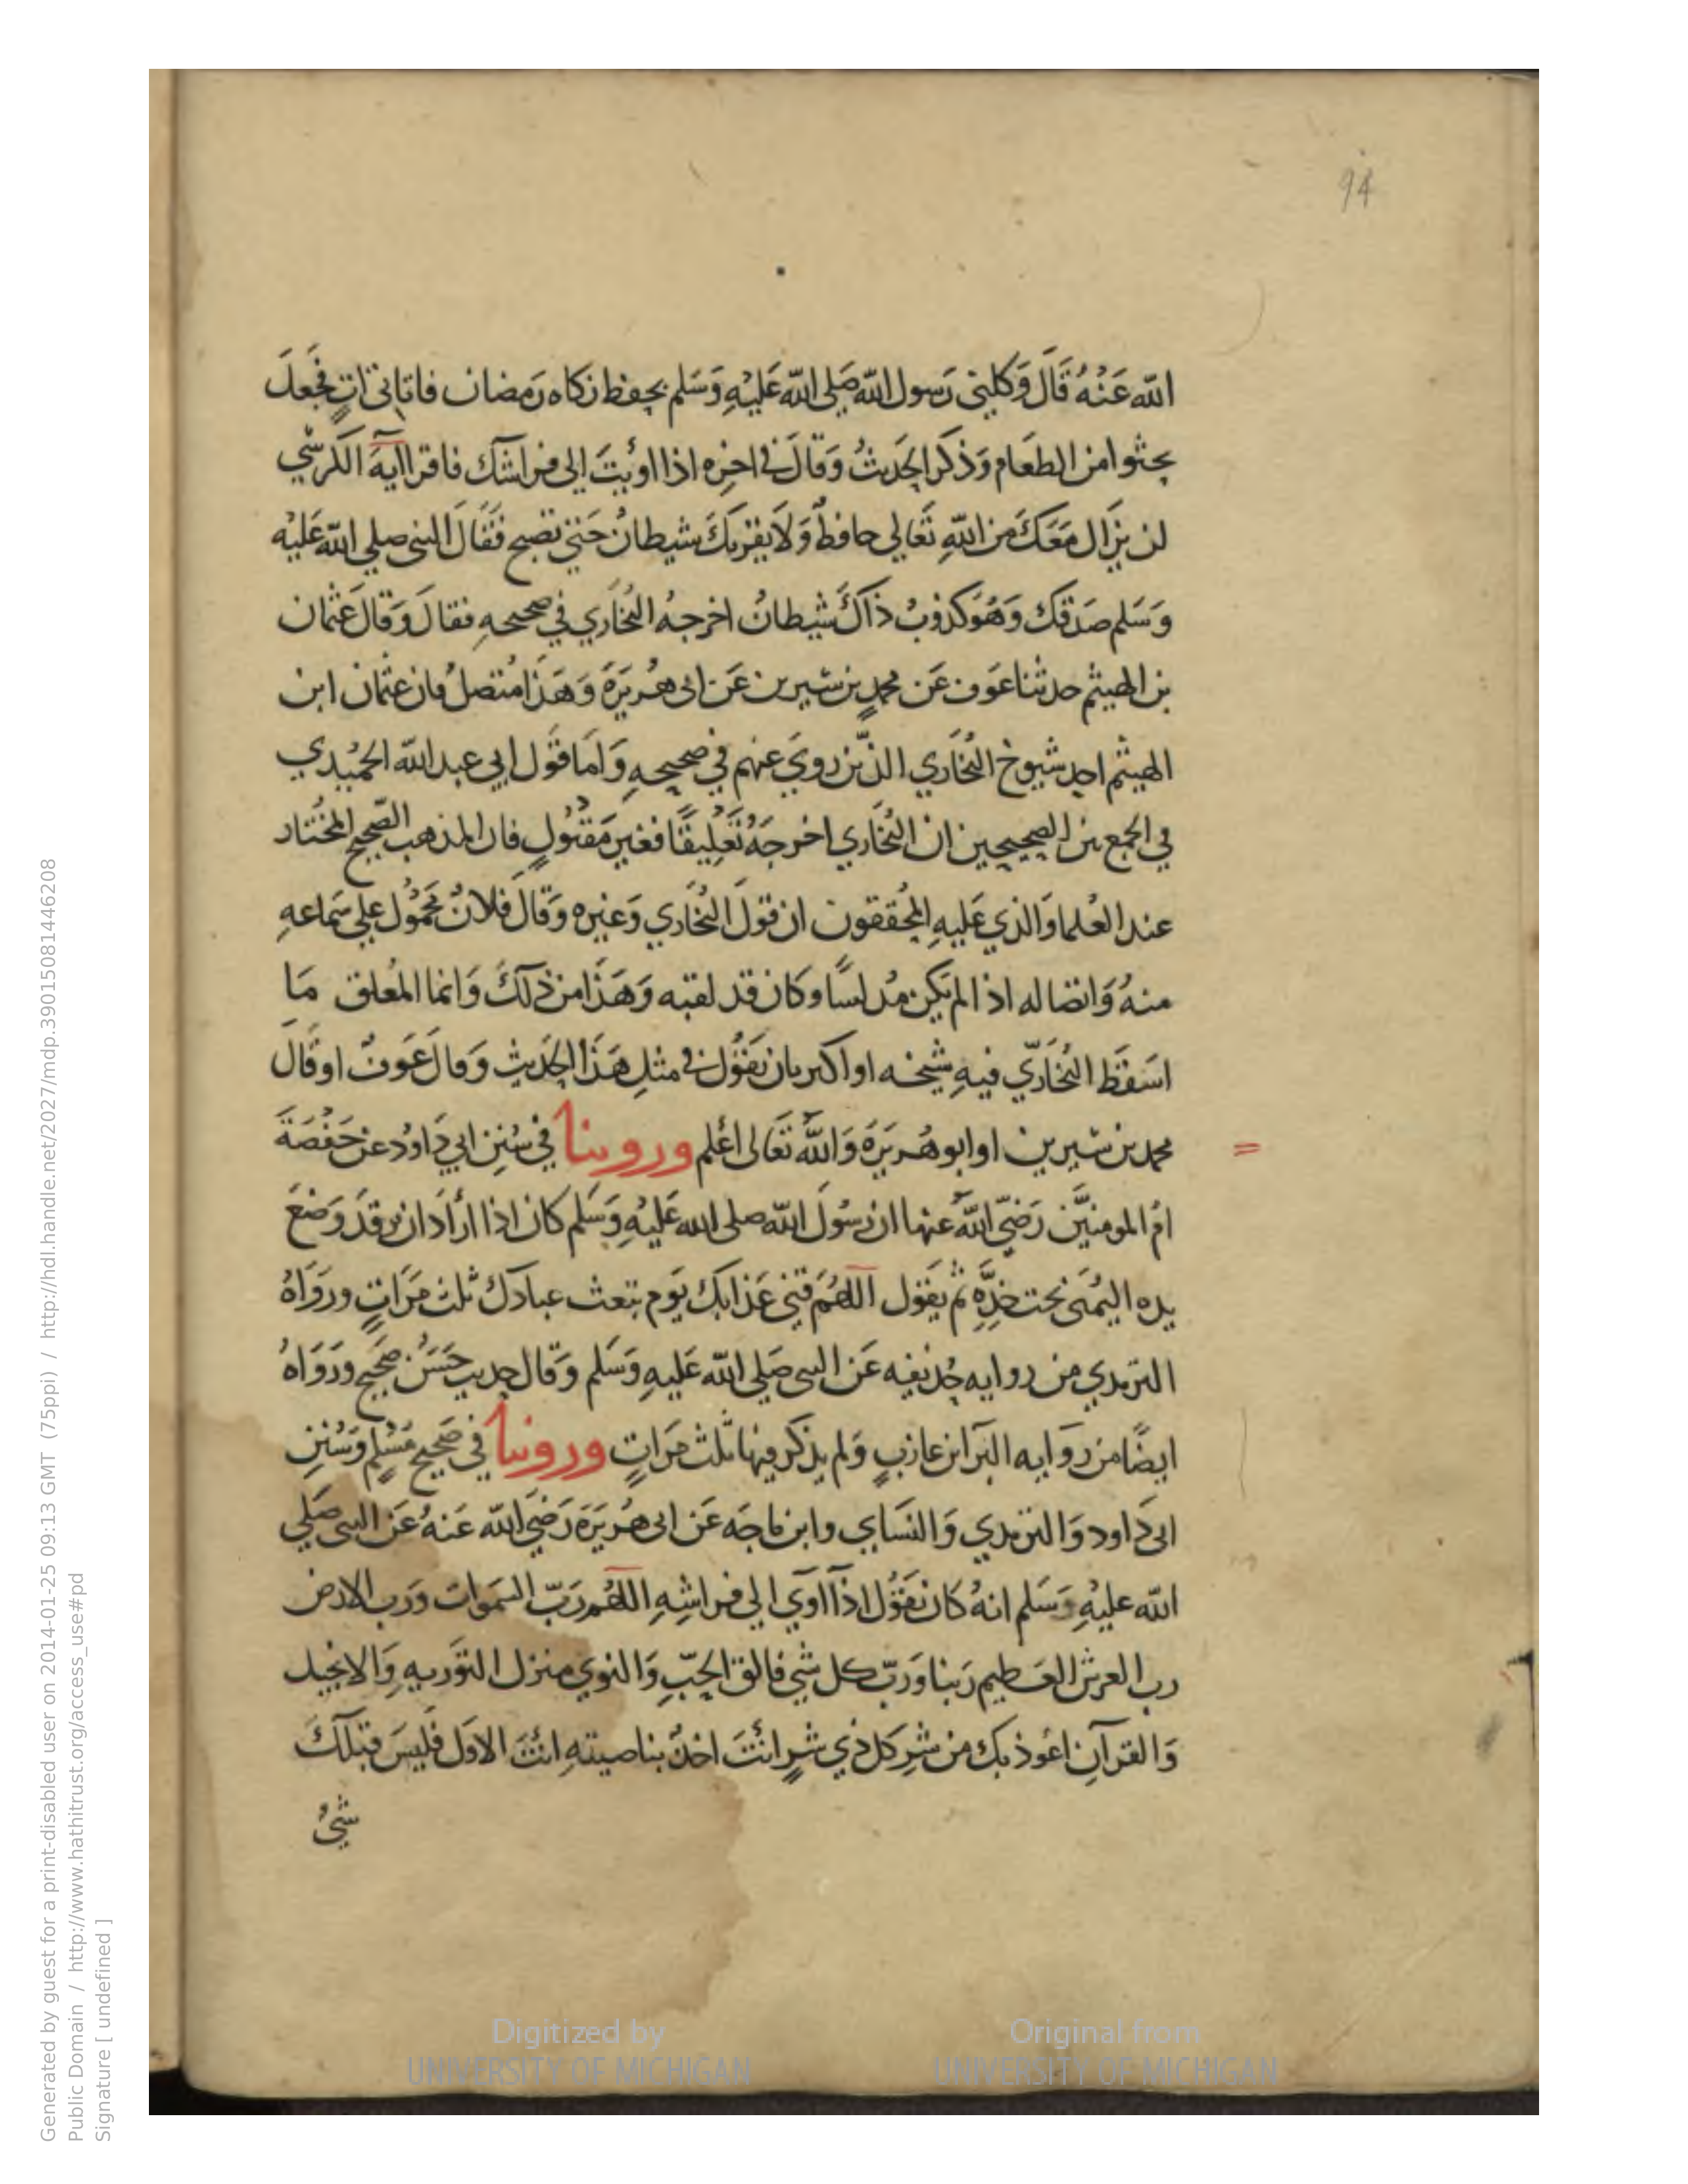 94
الله عَنْهُ قَالَ وَكلني رَسول الله صَلي الله عَليْهِ وَسَلم بحفظ زكاه رَمضان فاتاني اتٍ فجعلَ
يحثوا من الطعَام وَذكر الحَديثُ وَقالَ في اخرِه اذا اويتَ الي فراشك فاقرا ايةَ الكرسّي
لن يزَال مَعَكَ من اللهِ تَعَالي حافظٌ وَلَا يقربَكَ شيطانٌ حَتي تصبح فَقَالَ النبي صلي الله عَليْه
وَسَلم صَدقكَ وَهُوَ كذوبٌ ذاكَ شيطانٌ اخرجهُ البُخاري في صحيحهِ فقالَ وَقالَ عثمان
بن الهيثم حدثنا عَوف عَن محمدٍ بن سيرين عَن ابي هُريَرَة وَهَذَا مُتصلٌ فان عثمان ابن
الهيثم احد شيوخ البُخاري الذين رويَ عنهم في صحيحهِ وَامَا قَول ابي عبد الله الحمُيدي
في الجمع بين الصحيحين ان البُخاري اخرجَهُ تَعْلِيقًا فغير مَقبُولٍ فان المذهب الصَحيح المختار
عند العُلما وَالذي عَليهِ المحُققون ان قولَ البُخاري وَغيره وَقالَ فلانٌ محَمُول علي سَماعهِ
منهُ وَاتصاله اذا لم يَكن مُدلسًا وكان قد لقيه وَهَذَا من ذلكَ وَانما المُعلق مَا
اسَقَط البُخاري فيهِ شيخه او اكثر بان يَقول في مثلِ هَذا الحَديثِ وَقالَ عَوفٌ او قَالَ
محمد بن سيرين او ابو هُريرَةَ وَاللهُ تَعَالي أعلم وروينا في سُننِ ابي دَاودُ عن حَفصَةَ
امُ المومنيَّن رَضيّ اللهُ عنها ان رسُولَ الله صلى الله عَليهِ وَسَلم كان اذا ارَادَ ان يرقدَ وَضعَ
يده اليُمنَى تحت خدِّهِ ثم يَقول اللهُم قني عَذابَك يَوم تبعث عبادكَ ثلث مَرَاتٍ ورَوَاهُ
الترمدي من روايه حُذيفه عَن النبي صَلي الله عَليهِ وَسَلم وَقال حديث حَسَنٌ صحَيح ورَوَاهُ
ايضًا من رَوايه البَرا بن عازبٍ وَلم يذكر فيها ثلث مَرَاتٍ وروينا في صَحيح مُسْلِمٍ وَسُننِ
ابي دَاود وَالترمدي وَالنسَاي وابن مَاجَه عَن ابي هُريَرَة رَضيَ الله عَنهُ عَن النبي صَلي
الله عليْهِ وَسَلم انهُ كان يَقُول اذآ اوَي الي فراشِهِ اللهُم رَبّ السَموات وَرَب الارض
رب العرش العَظيم رَبنا وَرَبّ كل شي فالق الحَبِّ وَالنوي منزل التوَريهِ وَالانجيل
وَالقرآنِ اعوُذ بك من شرِ كل ذي شرٍ انتَ اخذٌ بناصيتهِ انتَ الاول فَليسَ قبلكَ
شيُ
Generated by guest for a print-disabled user on 2014-01-25 09:13 GMT (75ppi) / http://hdl.handle.net/2027/mdp.39015081446208
Public Domain / http://www.hathitrust.org/access_use#pd
Signature [ undefined ]
Digitized by
UNIVERSITY OF MICHIGAN
Original from
UNIVERSITY OF MICHIGAN